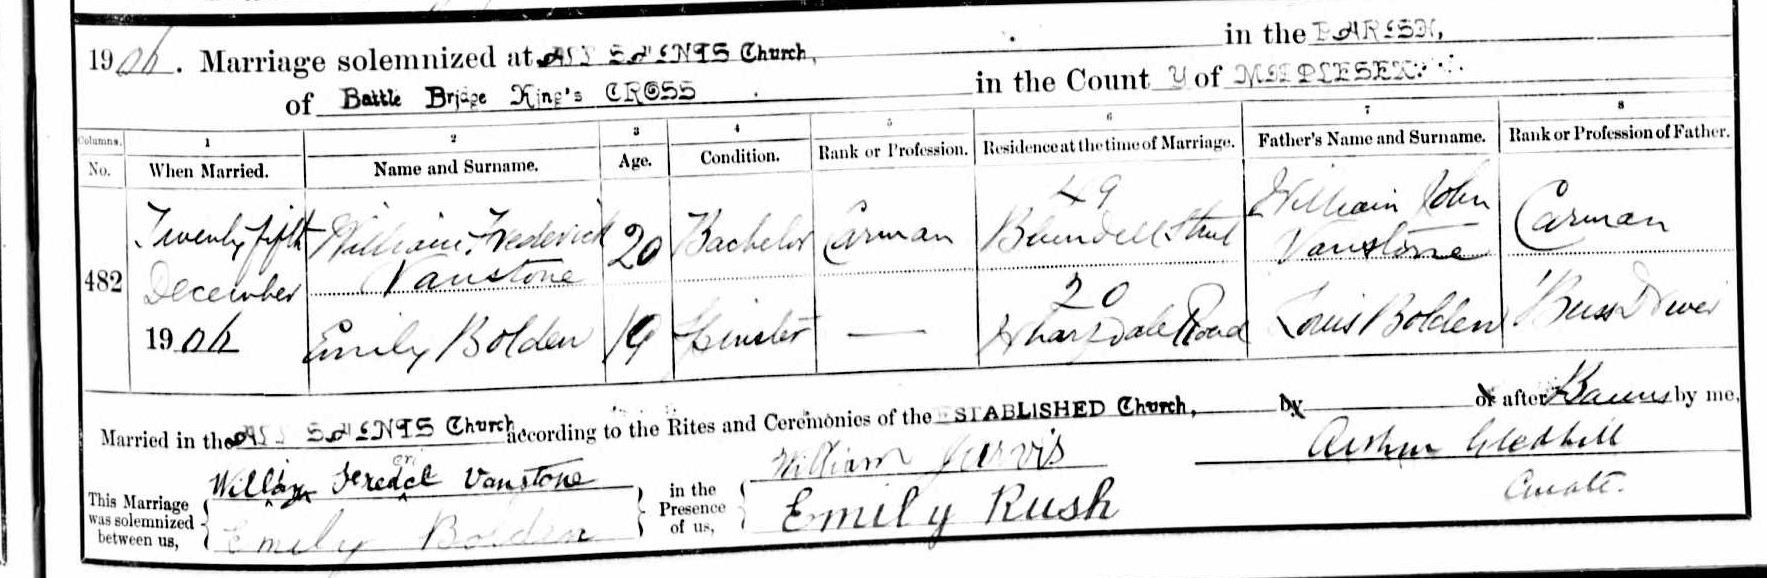 1906. Marriage solemnized at ALL SAINTS Church, in the PARISH,
of Battle Bridge King's CROSS in the County of MIDDLESEX.
Columns. 1 2 3 4 5 6 7 8
No. When Married. Name and Surname. Age. Condition. Rank or Profession. Residence at the time of Marriage. Father's Name and Surname. Rank or Profession of Father.
482
Twenty fifth
December
1906
William Frederick
Vanstone
20
Bachelor
Carman
49
Blundell Street
William John
Vanstone
Carman
Emily Bolden
19
Spinster
—
20
Wharfdale Road
Louis Bolden
'Buss Driver
Married in the ALL SAINTS Church according to the Rites and Ceremonies of the ESTABLISHED Church, by or after Banns by me,
This Marriage
was solemnized
between us,
William Feredrick Vanstone
Emily Bolden
in the
Presence
of us,
William Jurvis
Emily Rush
Arthur Gledhill
Curate.